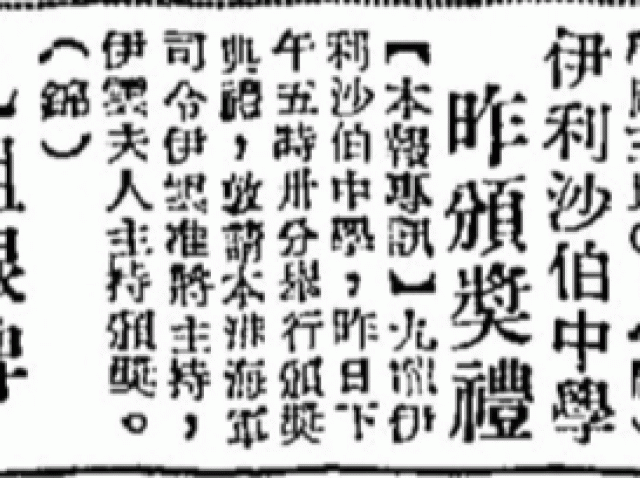 伊利沙伯中學
昨頒獎禮
【本報專訊】九龍伊
利沙伯中學，昨日下
午五時卅分舉行頒獎
典禮，敦請本港海軍
司令伊雲准將主持，
伊雲夫人主持頒獎。
（錦）